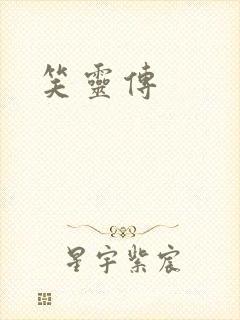 笑靈傳
星宇紫宸